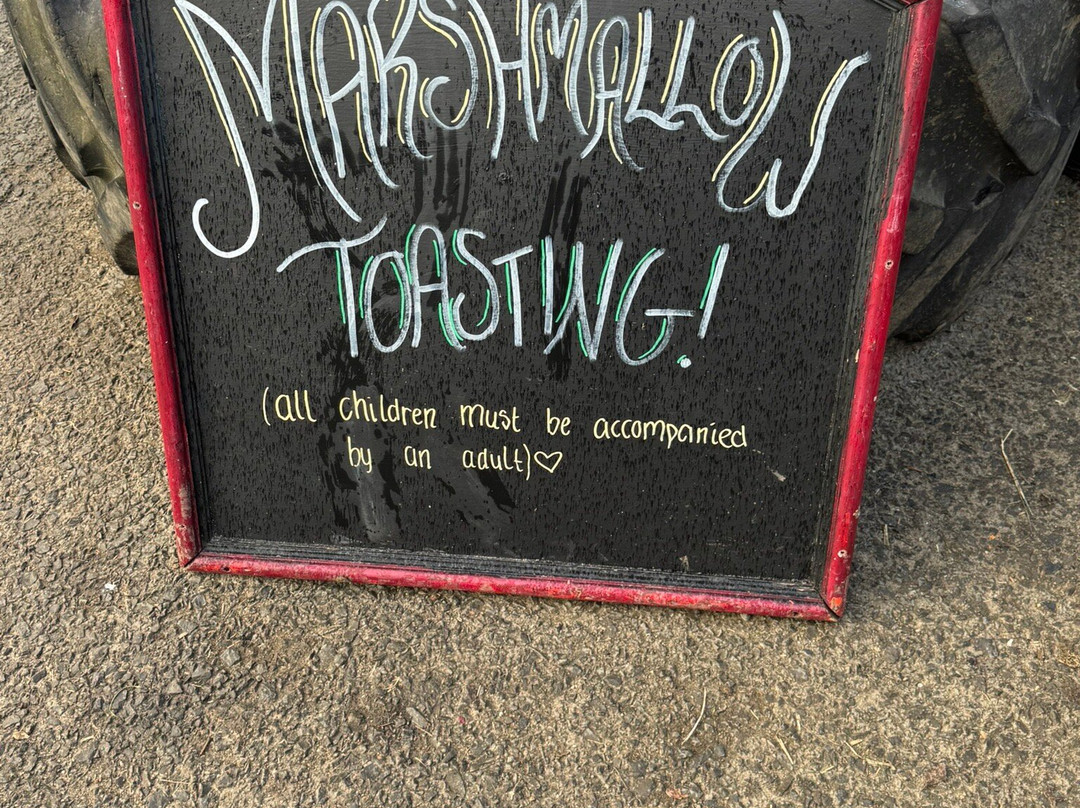 MARSHMALLOW
TOASTING!
(all children must be accompanied
by an adult)♡